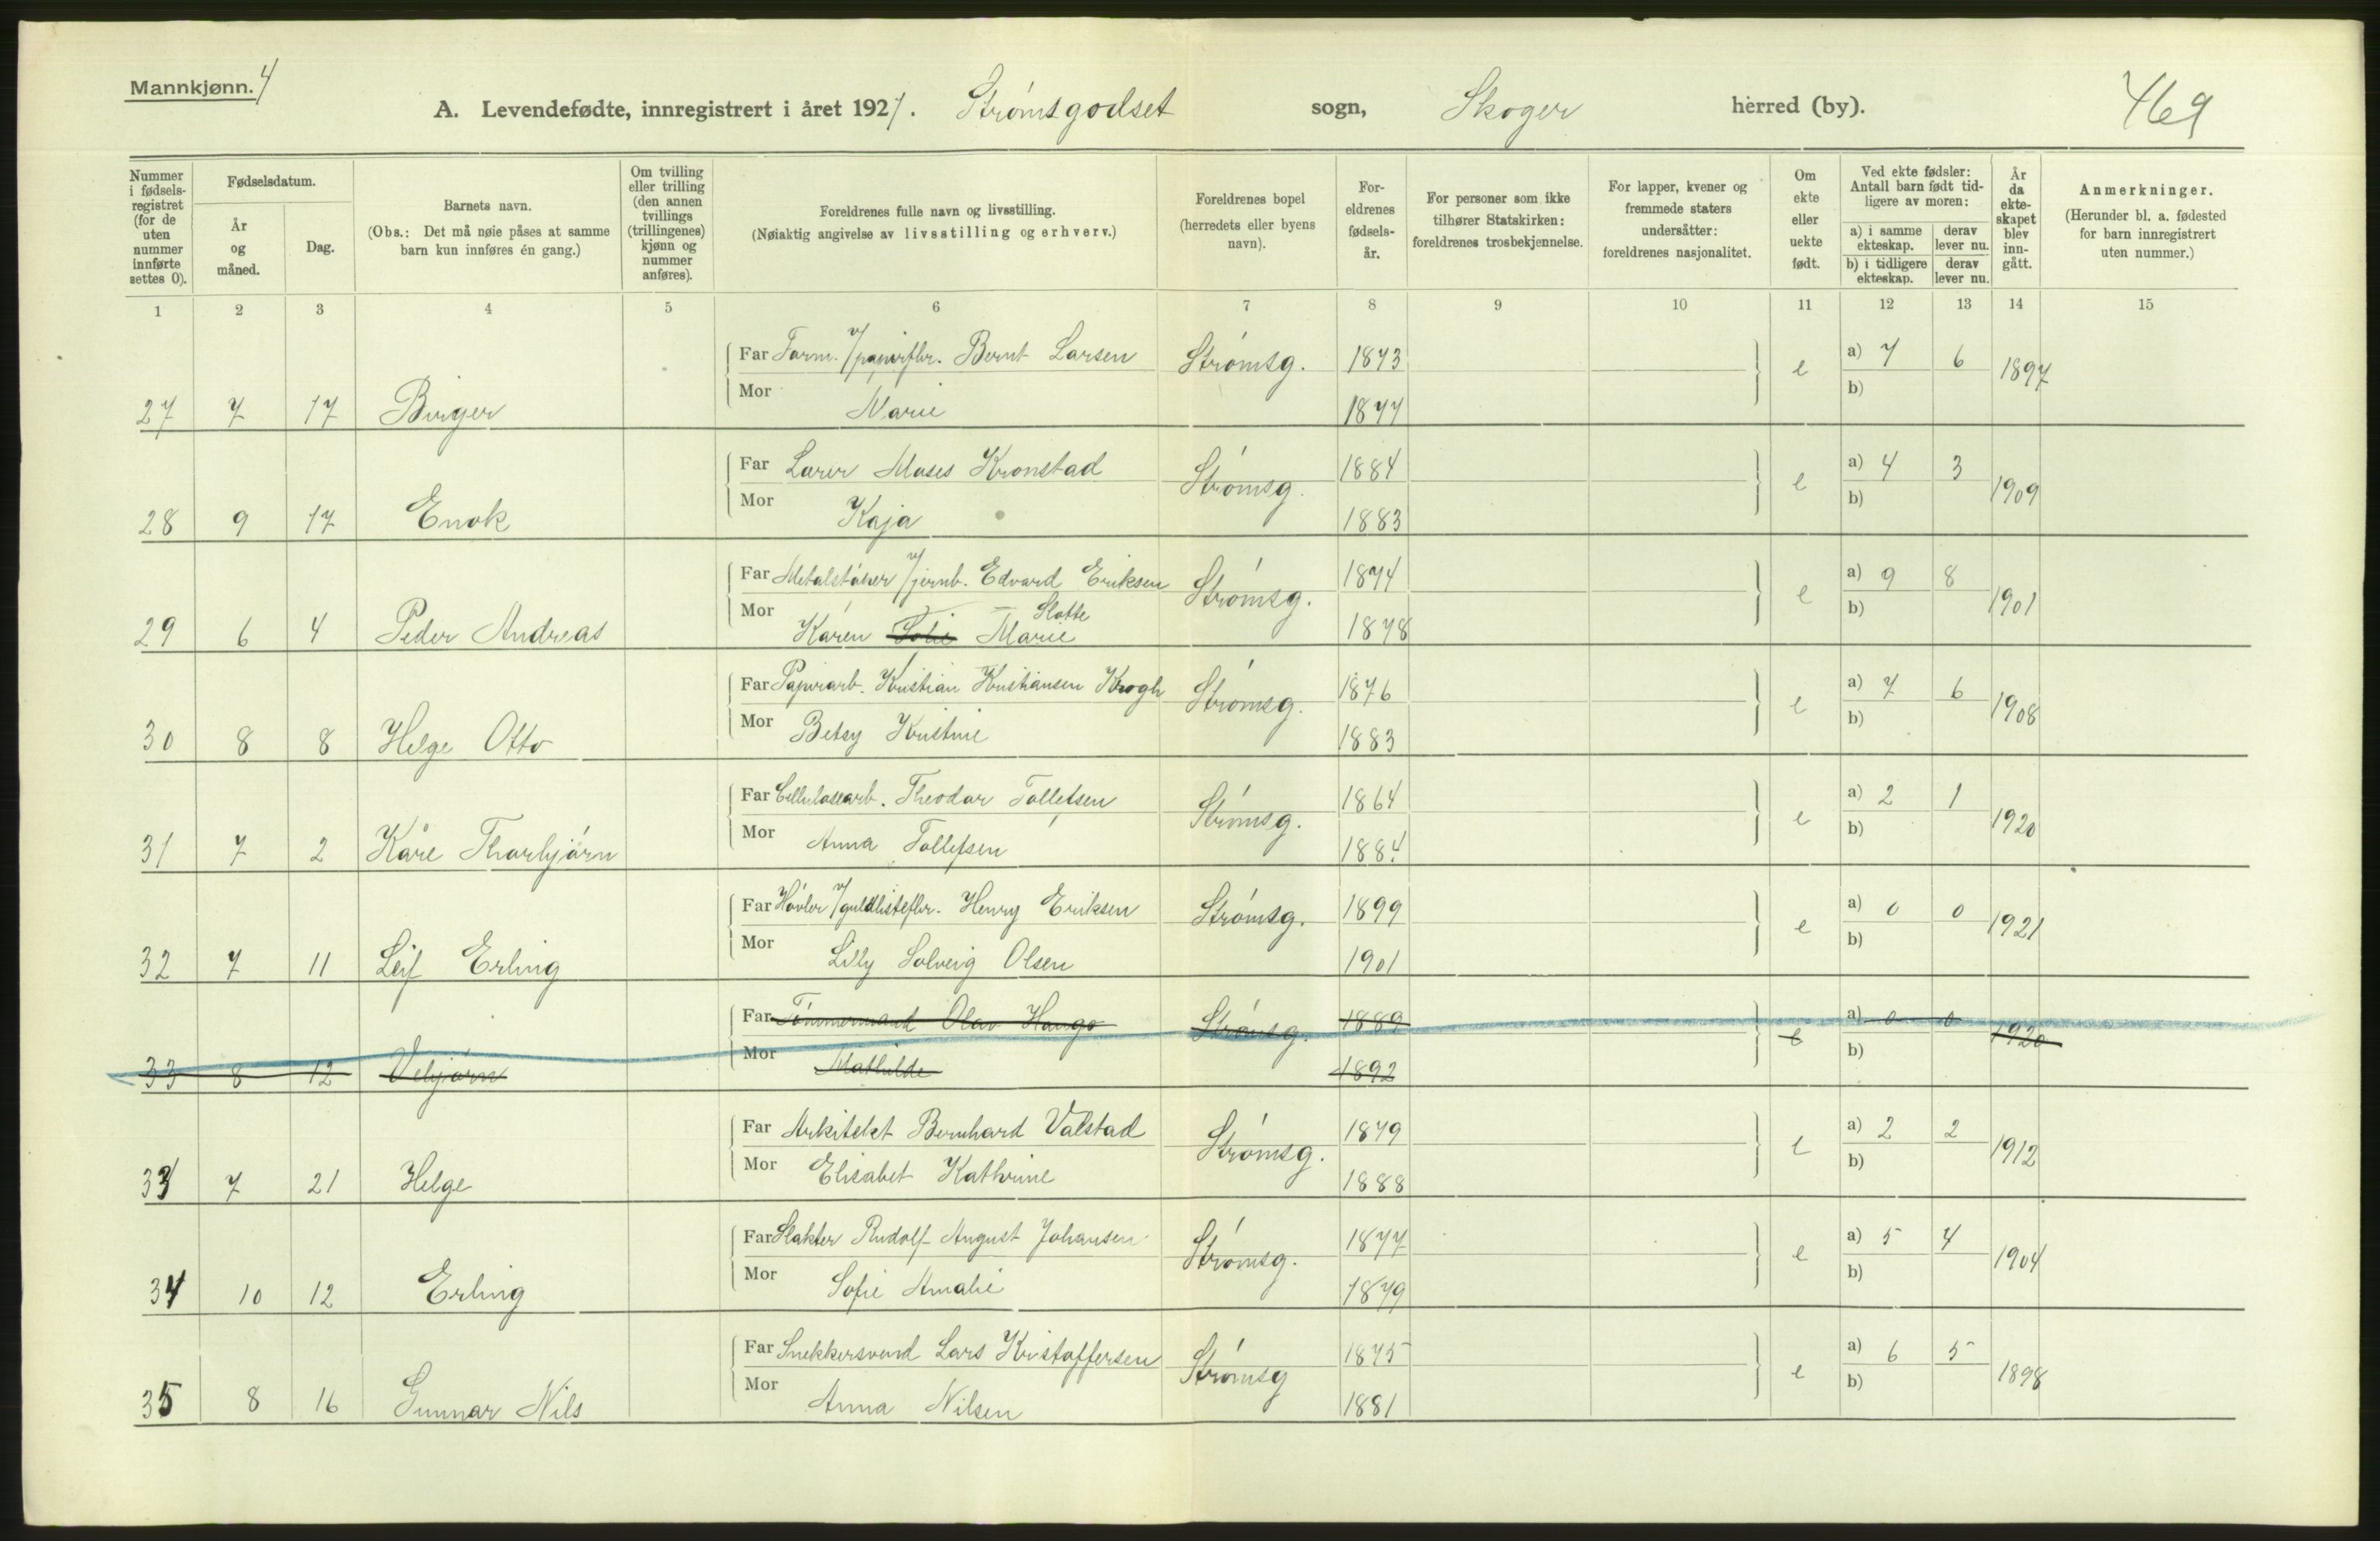 Mannkjønn. 4
A. Levendefødte, innregistrert i året 1921. Strømsgodset sogn, Skoger herred (by). 469
Nummer i fødsels-registret (for de uten nummer innførte settes 0).
Fødselsdatum.
År og måned.
Dag.
Barnets navn.
(Obs.: Det må nøie påses at samme barn kun innføres én gang.)
Om tvilling eller trilling (den annen tvillings (trillingenes) kjønn og nummer anføres).
Foreldrenes fulle navn og livsstilling.
(Nøiaktig angivelse av livsstilling og erhverv.)
Foreldrenes bopel (herredets eller byens navn).
For-eldrenes fødsels-år.
For personer som ikke tilhører Statskirken: foreldrenes trosbekjennelse.
For lapper, kvener og fremmede staters undersåtter: foreldrenes nasjonalitet.
Om ekte eller uekte født.
Ved ekte fødsler: Antall barn født tid-ligere av moren:
a) i samme ekteskap. derav lever nu.
b) i tidligere ekteskap. derav lever nu.
År da ekte-skapet blev inn-gått.
Anmerkninger.
(Herunder bl. a. fødested for barn innregistrert uten nummer.)
1 2 3 4 5 6 7 8 9 10 11 12 13 14 15
Far Form. v/papirfbr. Bernt Larsen Strømsg. 1873 e a) 7 6 1897
27 7 17 Birger Mor Marie 1877 b)
Far Lærer Moses Kronstad Strømsg. 1884 e a) 4 3 1909
28 9 17 Enok Mor Kaja 1883 b)
Far Metalstøber v/jernb. Edvard Eriksen Strømsg. 1874 e a) 9 8 1901
Slotte
29 6 4 Peder Andreas Mor Karen Marie 1878 b)
Far Papirarb. Kristian Kristiansen Krogh Strømsg. 1876 e a) 7 6 1908
30 8 8 Helge Otto Mor Betsy Kristine 1883 b)
Far Cellulosearb. Theodor Tollefsen Strømsg. 1864 e a) 2 1 1920
31 7 2 Kåre Thorbjørn Mor Anna Tollefsen 1884 b)
Far Høvler v/guldlistefbr. Henry Eriksen Strømsg. 1899 e a) 0 0 1921
32 7 11 Leif Erling Mor Lilly Solveig Olsen 1901 b)
Far Tømmermand Olav Haugo Strømsg. 1889 e a) 0 0 1920
33 8 12 Vebjørn Mor Mathilde 1892 b)
Far Arkitekt Bernhard Valstad Strømsg. 1879 e a) 2 2 1912
33 7 21 Helge Mor Elisabet Kathrine 1888 b)
Far Slakter Rudolf August Johansen Strømsg. 1877 e a) 5 4 1904
34 10 12 Erling Mor Sofie Amalie 1879 b)
Far Snekkersvend Lars Kristoffersen Strømsg 1875 e a) 6 5 1898
35 8 16 Gunnar Nils Mor Anna Nilsen 1881 b)